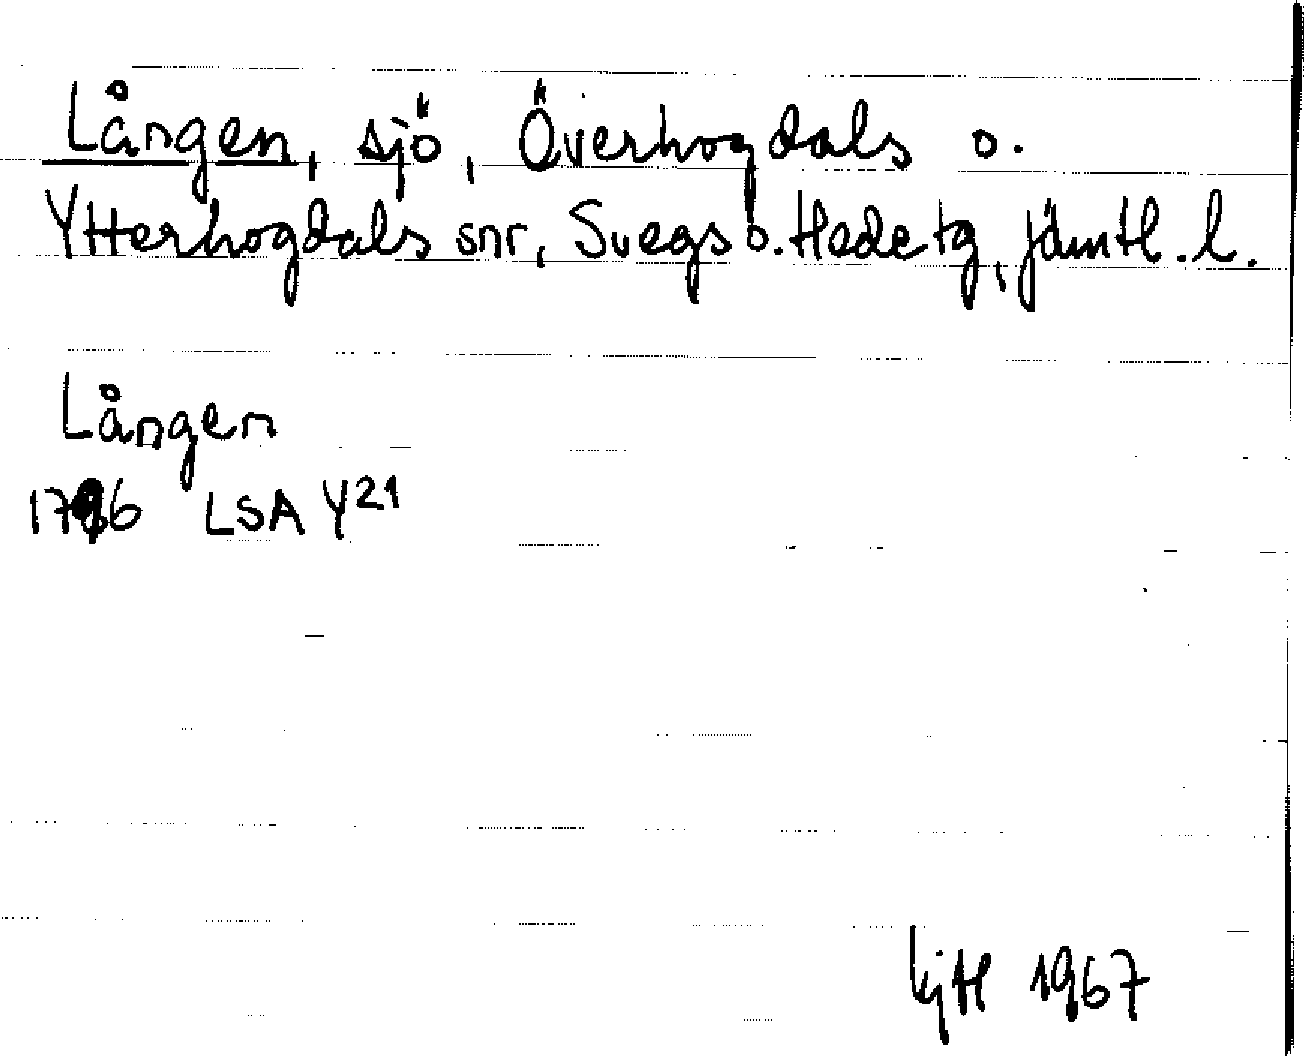 Lången, sjö, Överhogdals o.
Ytterhogdals snr, Svegs o. Hede tg, Jämtl. l.
Lången
1796 LSA Y21
1967